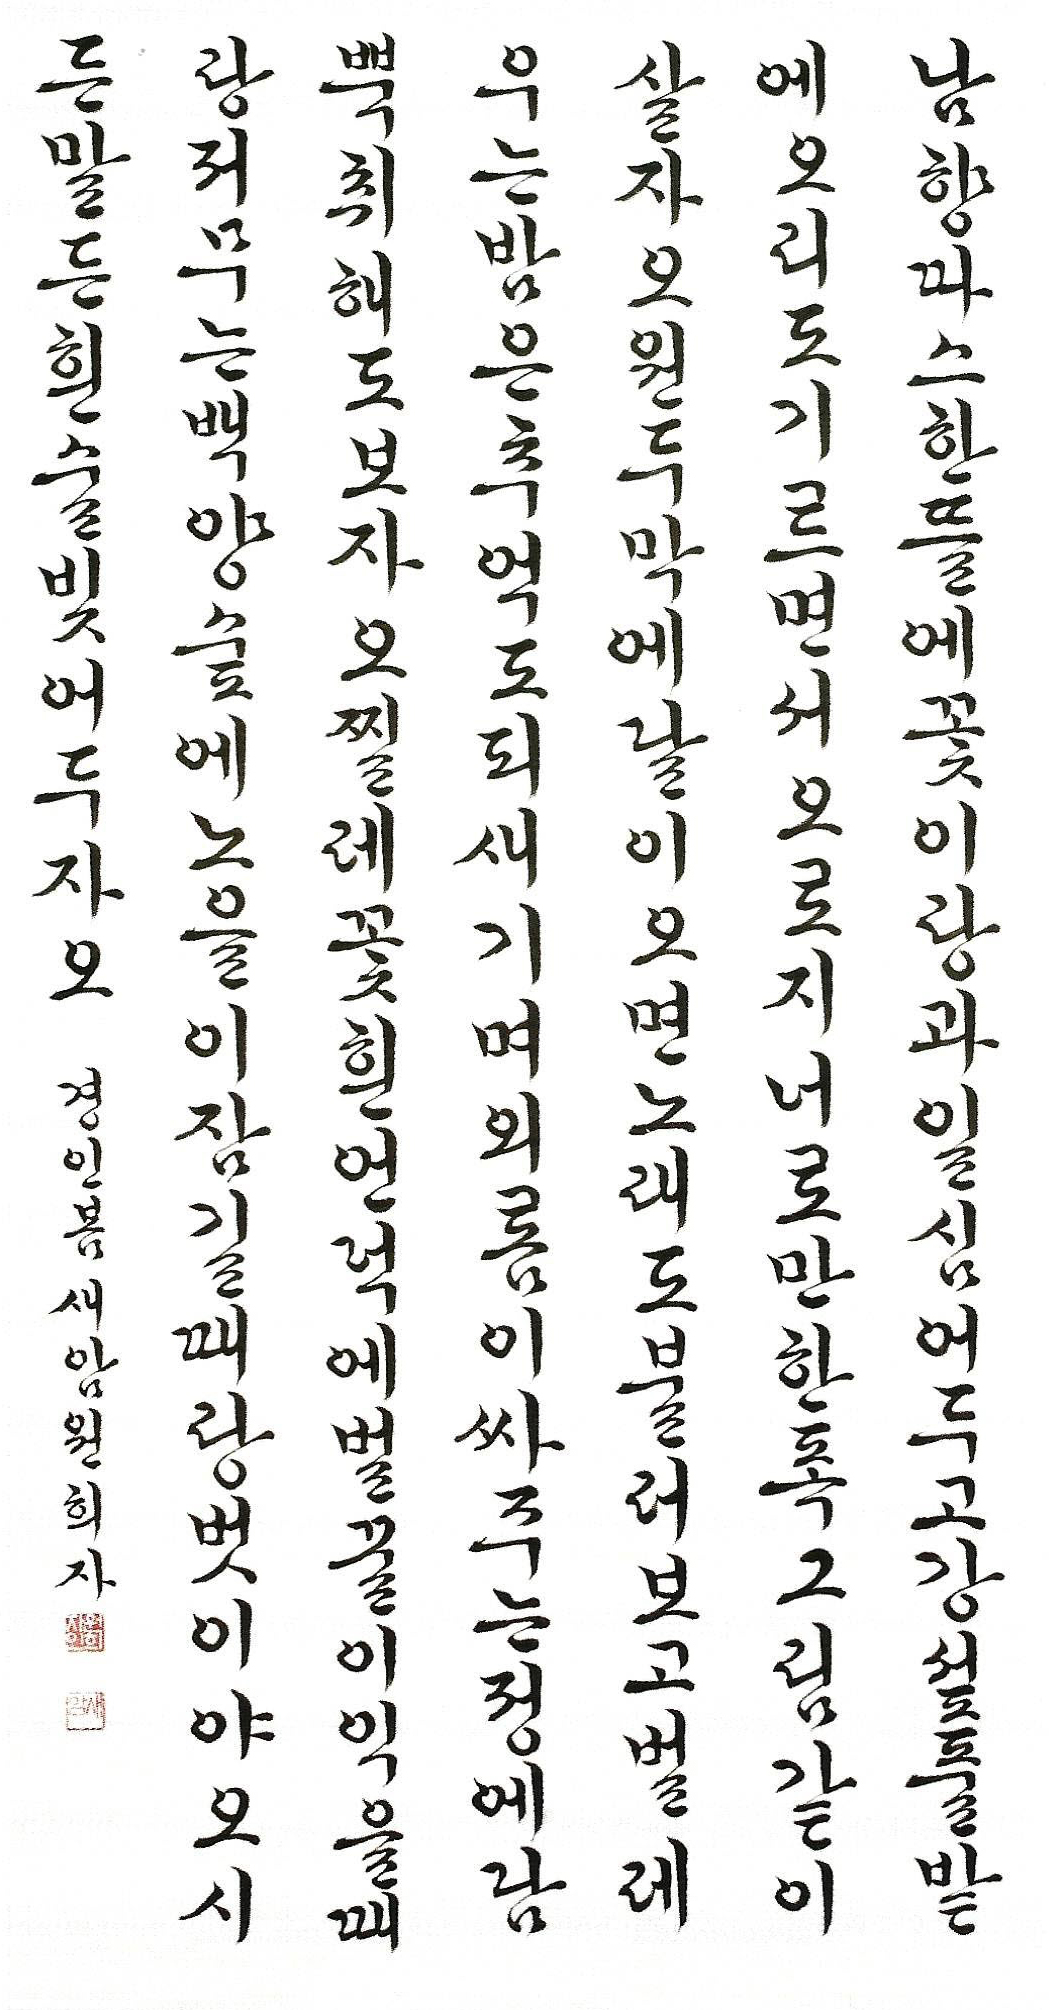 남향따스한뜰에꽃이랑과일심어두고강섶풀밭
에오리도기르면서오로지너로만한폭그림같이
살자오원두막에달이오면노래도불러보고벌레
우는밤은추억도되새기며외롬이싸주는정에담
뿍취해도보자오찔레꽃흰언덕에벌꿀이익을때
랑저무는백양숲에노을이잠길때랑벗이야오시
든말든흰술빚어두자오 경인봄새암원희자